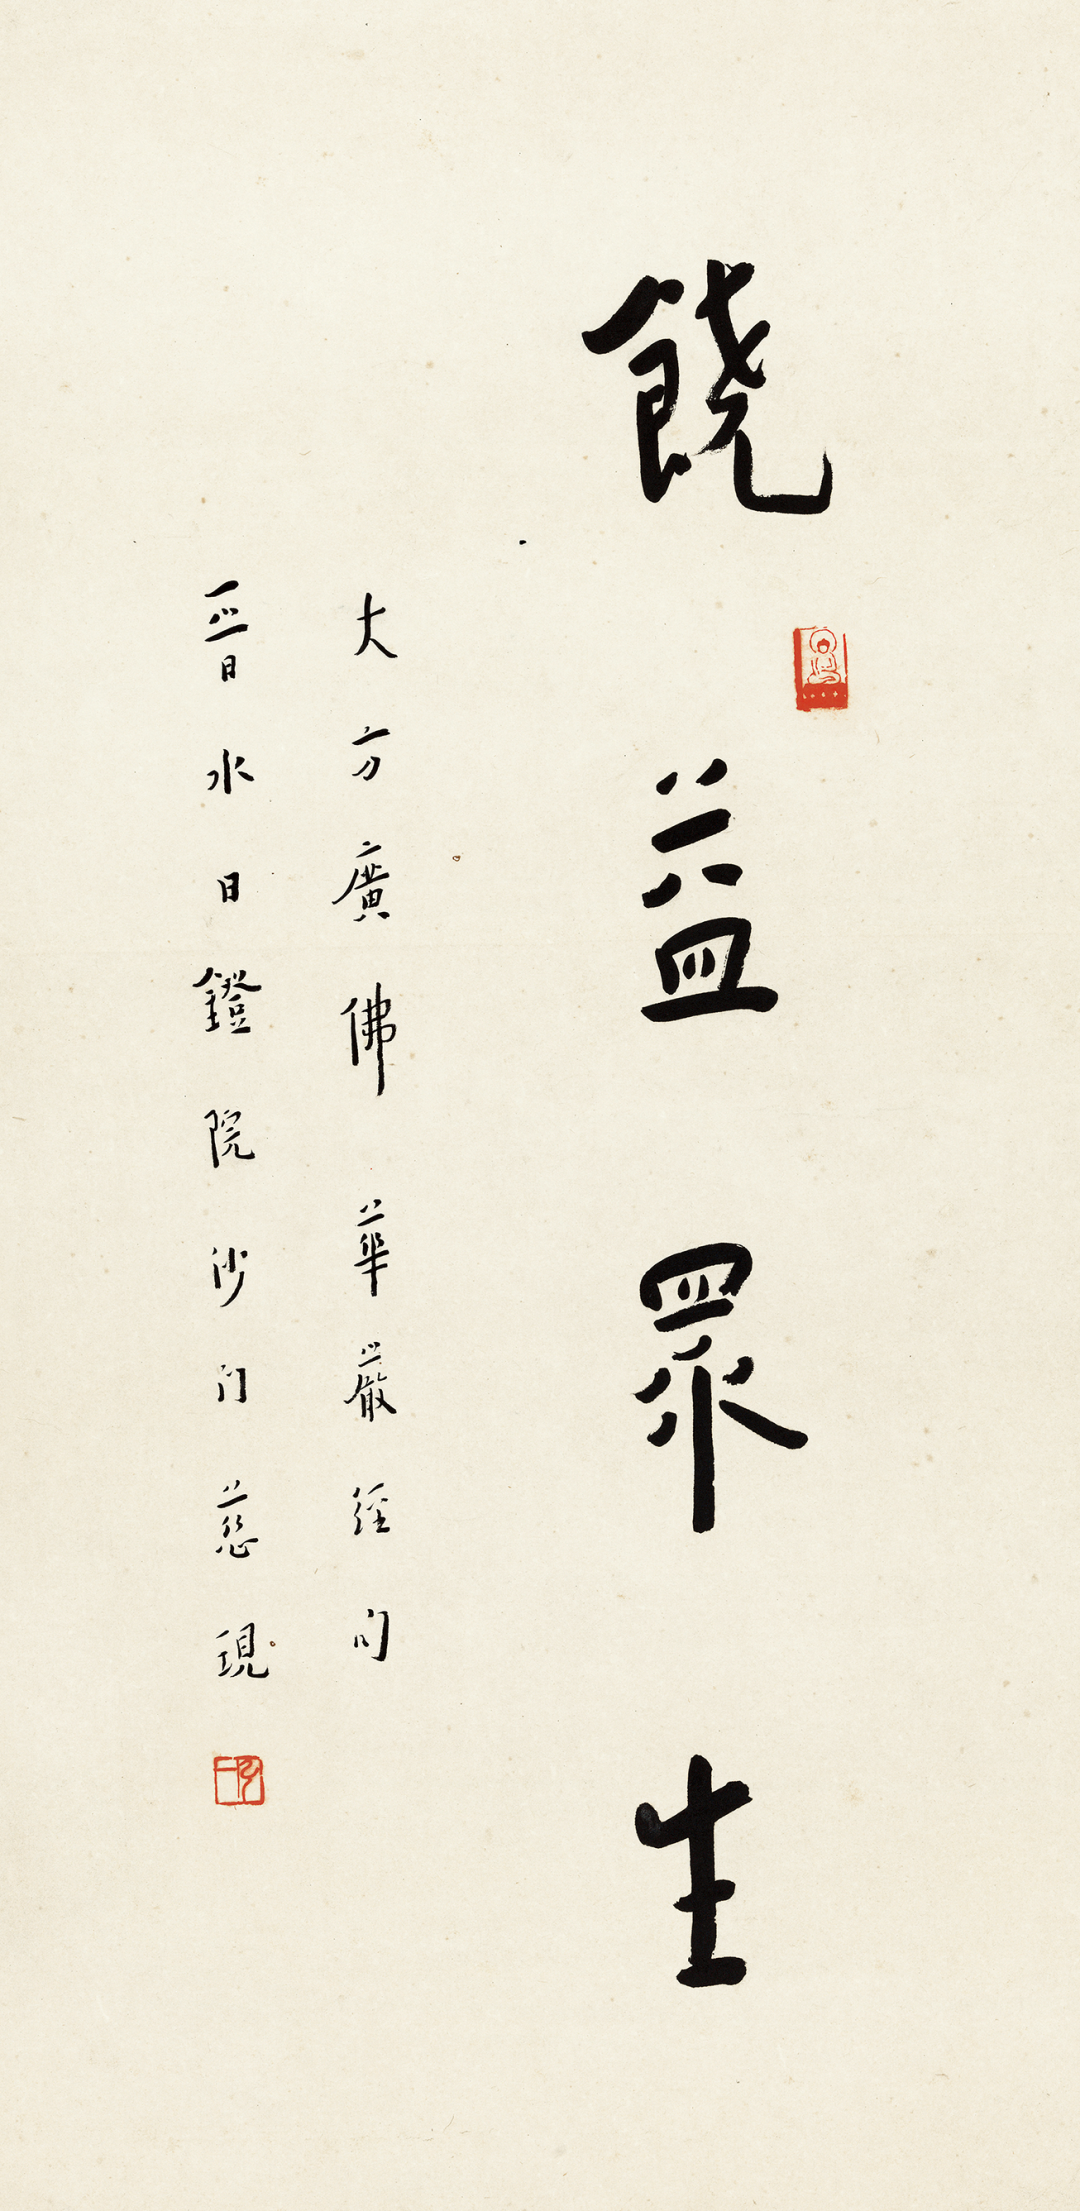 饒益眾生
大方廣佛華嚴經句
晉水月鐙院沙门慈現